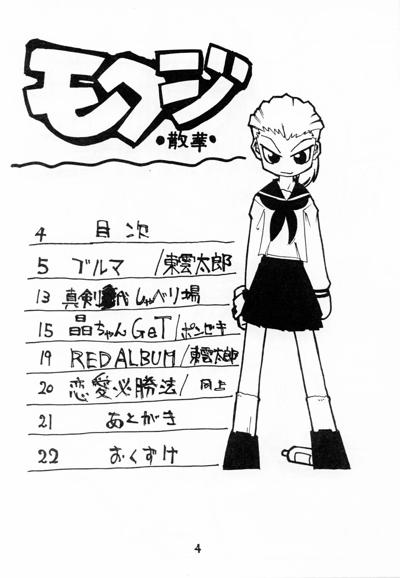 モクジ
・散華・
4 目次
5 ブルマ/東雲太郎
13 真剣代しゃべり場
15 晶ちゃんGeT/ポンセキ
19 RED ALBUM/東雲太郎
20 恋愛必勝法/同上
21 あとがき
22 おくずけ
4